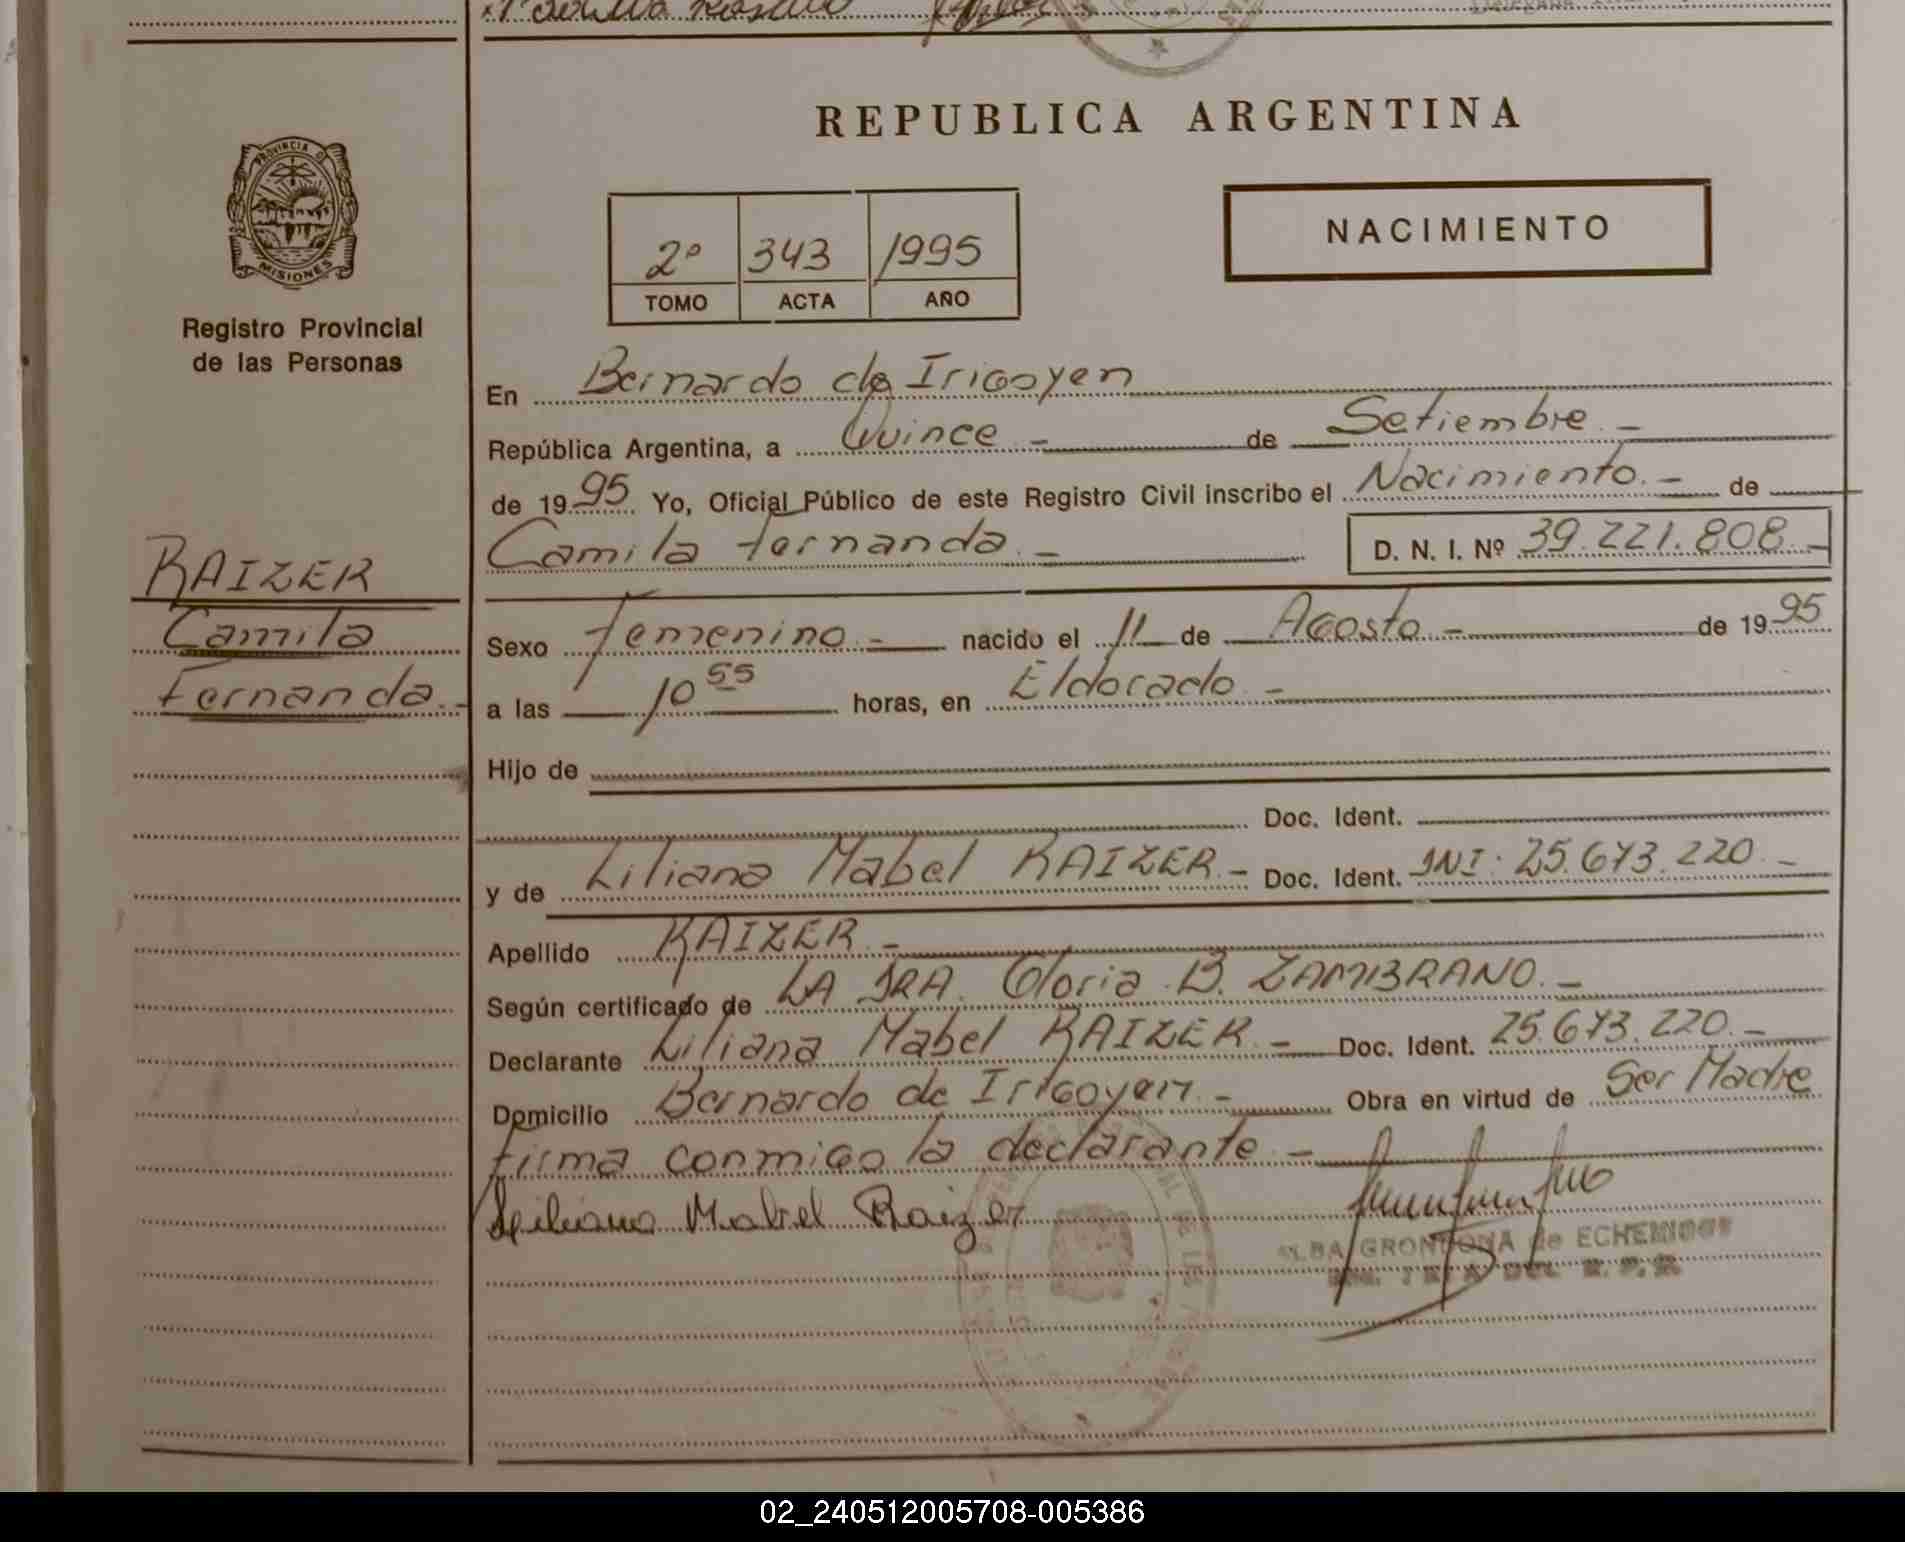 REPUBLICA ARGENTINA
PROVINCIA DE
MISIONES
Registro Provincial
de las Personas
2º 343 1995
TOMO ACTA AÑO
NACIMIENTO
En Bernardo de Irigoyen
República Argentina, a Quince - de Setiembre -
de 1995 Yo, Oficial Público de este Registro Civil inscribo el Nacimiento. - de
Camila Fernanda. - D. N. I. Nº 39.221.808. -
RAIZER
Camila
Fernanda. -
Sexo Femenino. - nacido el 11 de Agosto - de 1995
a las 10 55 horas, en Eldorado. -
Hijo de
Doc. Ident.
y de Liliana Mabel RAIZER. - Doc. Ident. DNI: 25.673.220. -
Apellido RAIZER. -
Según certificado de LA DRA. Gloria B. ZAMBRANO. -
Declarante Liliana Mabel RAIZER. - Doc. Ident. 25.673.220. -
Domicilio Bernardo de Irigoyen. - Obra en virtud de Ser Madre
firma conmigo la declarante. -
Liliana Mabel Raizer
ALBA GRONDONA de
02_240512005708-005386